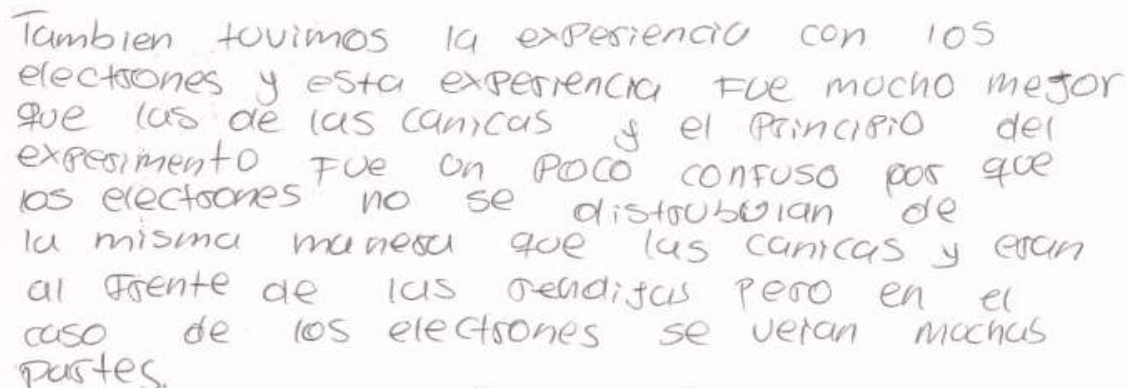 Tambien tuvimos la experiencia con los
electrones y esta experiencia Fue mucho mejor
que las de las canicas y el Principio del
experimento Fue un poco confuso por que
los electrones no se distrubuian de
la misma manera que las canicas y eran
al frente de las rendijas Pero en el
caso de los electrones se veian muchas
partes.